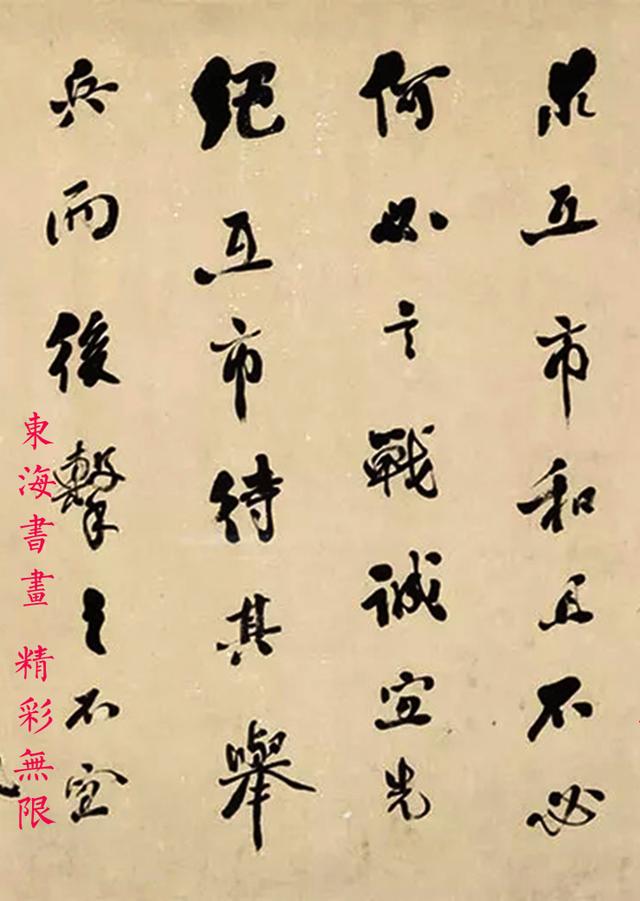 求互市和且不必
何必言戰誠宜先
絕互市待其舉
兵而後擊之不宜
東海書畫 精彩無限